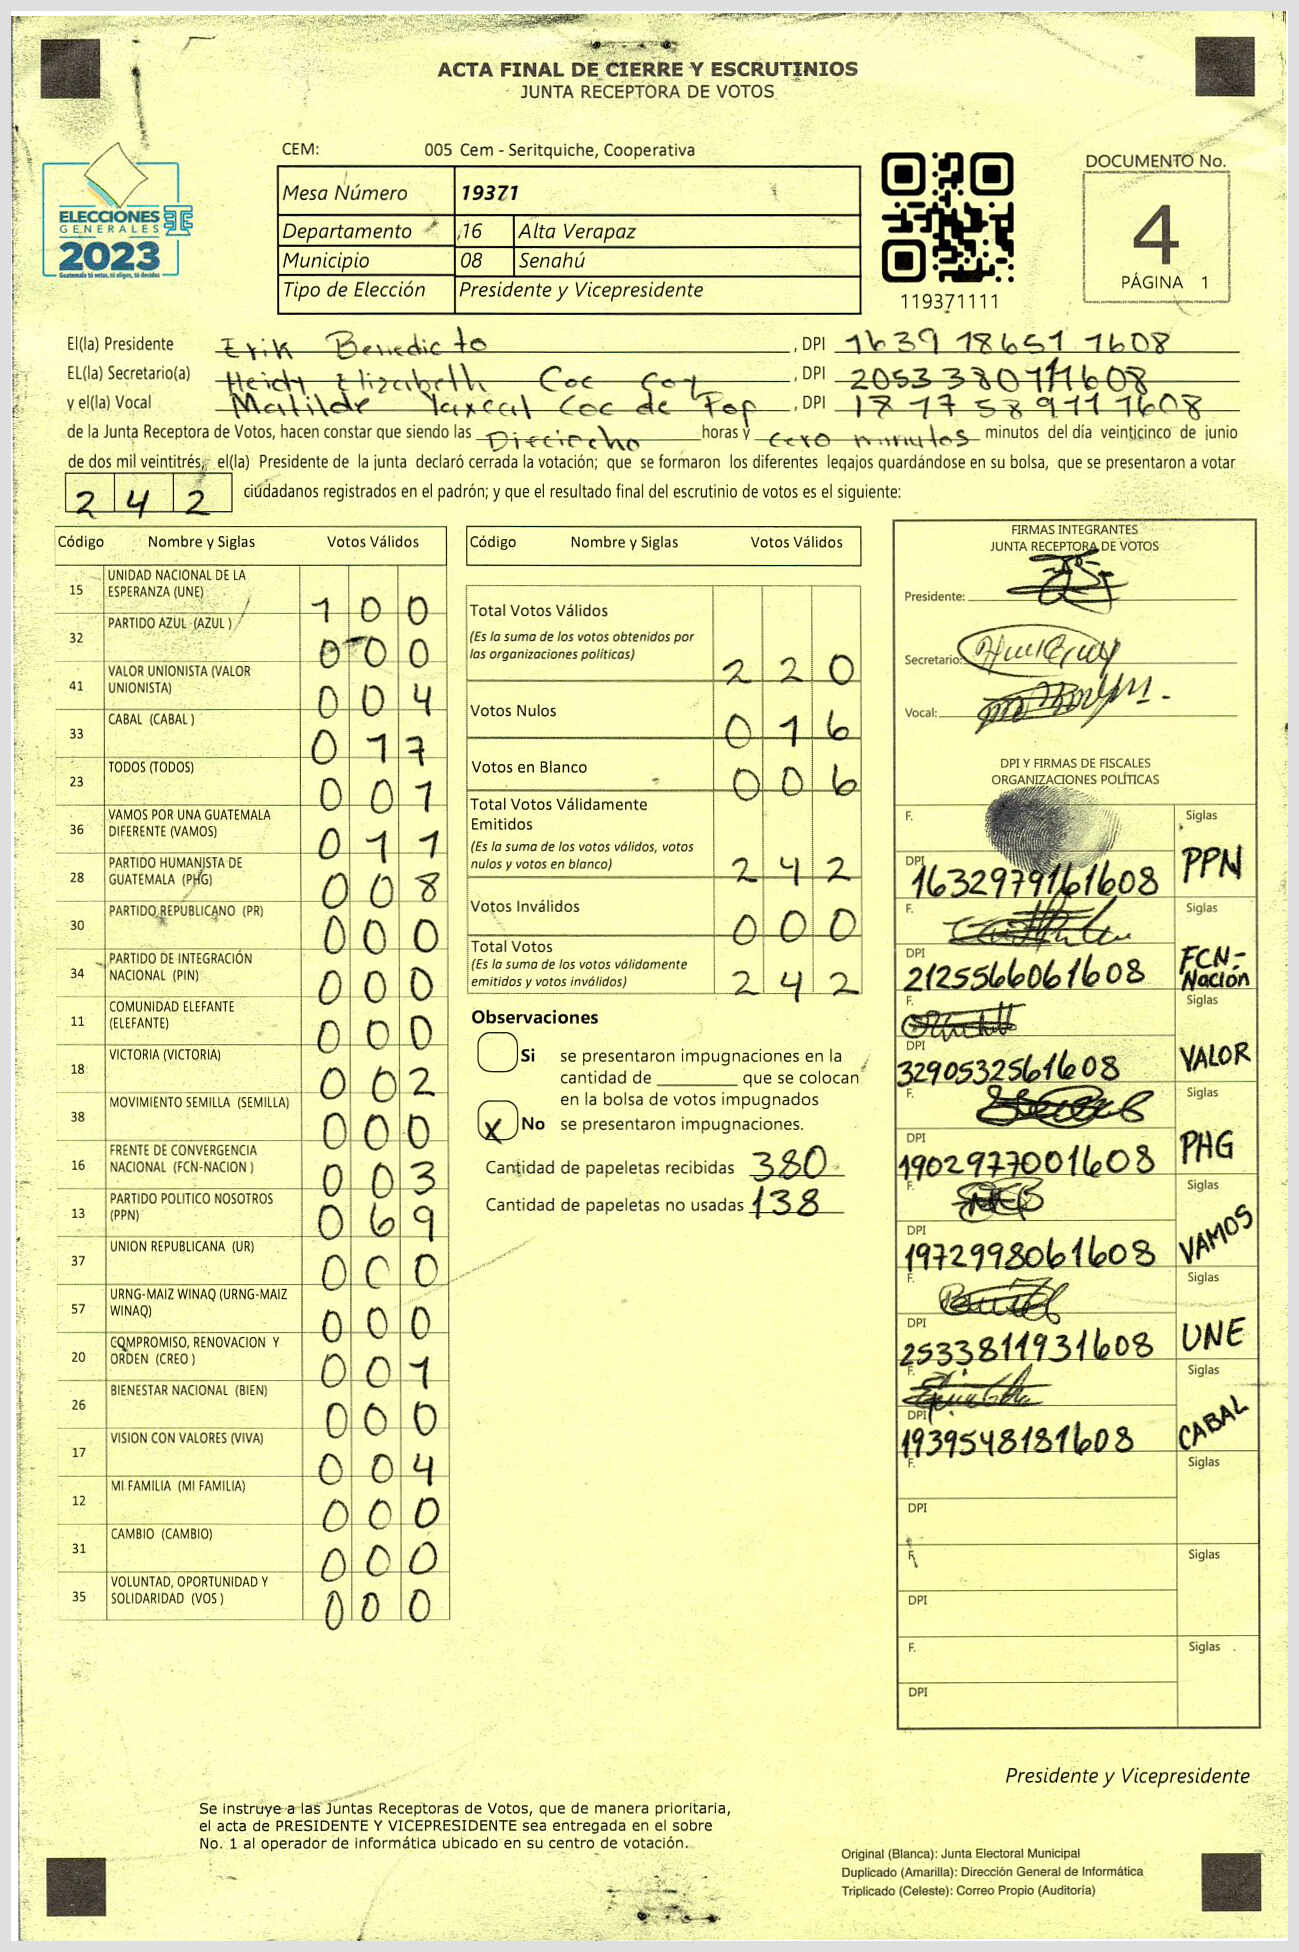 ACTA FINAL DE CIERRE Y ESCRUTINIOS
JUNTA RECEPTORA DE VOTOS
CEM: 005 Cem - Seritquiche, Cooperativa
Mesa Número 19371
Departamento 16 Alta Verapaz
Municipio 08 Senahú
Tipo de Elección Presidente y Vicepresidente
ELECCIONES
GENERALES
2023
119371111
DOCUMENTO No.
4
PÁGINA 1
El(la) Presidente Erik Benedicto , DPI 1639 18651 1608
EL(la) Secretario(a) Heidy Elizabeth Coc Coy , DPI 2053 38071 1608
y el(la) Vocal Matilde Yaxcal Coc de Pop , DPI 1817 58911 1608
de la Junta Receptora de Votos, hacen constar que siendo las Dieciocho horas y cero minutos minutos del día veinticinco de junio
de dos mil veintitrés, el(la) Presidente de la junta declaró cerrada la votación; que se formaron los diferentes legajos guardándose en su bolsa, que se presentaron a votar
242 ciudadanos registrados en el padrón; y que el resultado final del escrutinio de votos es el siguiente:
Código Nombre y Siglas Votos Válidos
15 UNIDAD NACIONAL DE LA
ESPERANZA (UNE) 100
32 PARTIDO AZUL (AZUL ) 000
41 VALOR UNIONISTA (VALOR
UNIONISTA) 004
33 CABAL (CABAL ) 017
23 TODOS (TODOS) 001
36 VAMOS POR UNA GUATEMALA
DIFERENTE (VAMOS) 011
28 PARTIDO HUMANISTA DE
GUATEMALA (PHG) 008
30 PARTIDO REPUBLICANO (PR) 000
34 PARTIDO DE INTEGRACIÓN
NACIONAL (PIN) 000
11 COMUNIDAD ELEFANTE
(ELEFANTE) 000
18 VICTORIA (VICTORIA) 002
38 MOVIMIENTO SEMILLA (SEMILLA) 000
16 FRENTE DE CONVERGENCIA
NACIONAL (FCN-NACION ) 003
13 PARTIDO POLITICO NOSOTROS
(PPN) 069
37 UNION REPUBLICANA (UR) 000
57 URNG-MAIZ WINAQ (URNG-MAIZ
WINAQ) 000
20 COMPROMISO, RENOVACION Y
ORDEN (CREO ) 001
26 BIENESTAR NACIONAL (BIEN) 000
17 VISION CON VALORES (VIVA) 004
12 MI FAMILIA (MI FAMILIA) 000
31 CAMBIO (CAMBIO) 000
35 VOLUNTAD, OPORTUNIDAD Y
SOLIDARIDAD (VOS ) 000
Código Nombre y Siglas Votos Válidos
Total Votos Válidos
(Es la suma de los votos obtenidos por
las organizaciones políticas) 220
Votos Nulos 016
Votos en Blanco 006
Total Votos Válidamente
Emitidos
(Es la suma de los votos válidos, votos
nulos y votos en blanco) 242
Votos Inválidos 000
Total Votos
(Es la suma de los votos válidamente
emitidos y votos inválidos) 242
Observaciones
Si se presentaron impugnaciones en la
cantidad de ________ que se colocan
en la bolsa de votos impugnados
X No se presentaron impugnaciones.
Cantidad de papeletas recibidas 380
Cantidad de papeletas no usadas 138
FIRMAS INTEGRANTES
JUNTA RECEPTORA DE VOTOS
Presidente:
Secretario:
Vocal:
DPI Y FIRMAS DE FISCALES
ORGANIZACIONES POLÍTICAS
F. Siglas
DPI 1632979161608 PPN
F. Siglas
DPI 2125566061608 FCN-
Nación
F. Siglas
DPI 3290532561608 VALOR
F. Siglas
DPI 1902977001608 PHG
F. Siglas
DPI 1972998061608 VAMOS
F. Siglas
DPI 2533811931608 UNE
F. Siglas
DPI 1939548181608 CABAL
F. Siglas
DPI
F. Siglas
DPI
F. Siglas
DPI
Presidente y Vicepresidente
Se instruye a las Juntas Receptoras de Votos, que de manera prioritaria,
el acta de PRESIDENTE Y VICEPRESIDENTE sea entregada en el sobre
No. 1 al operador de informática ubicado en su centro de votación.
Original (Blanca): Junta Electoral Municipal
Duplicado (Amarilla): Dirección General de Informática
Triplicado (Celeste): Correo Propio (Auditoría)